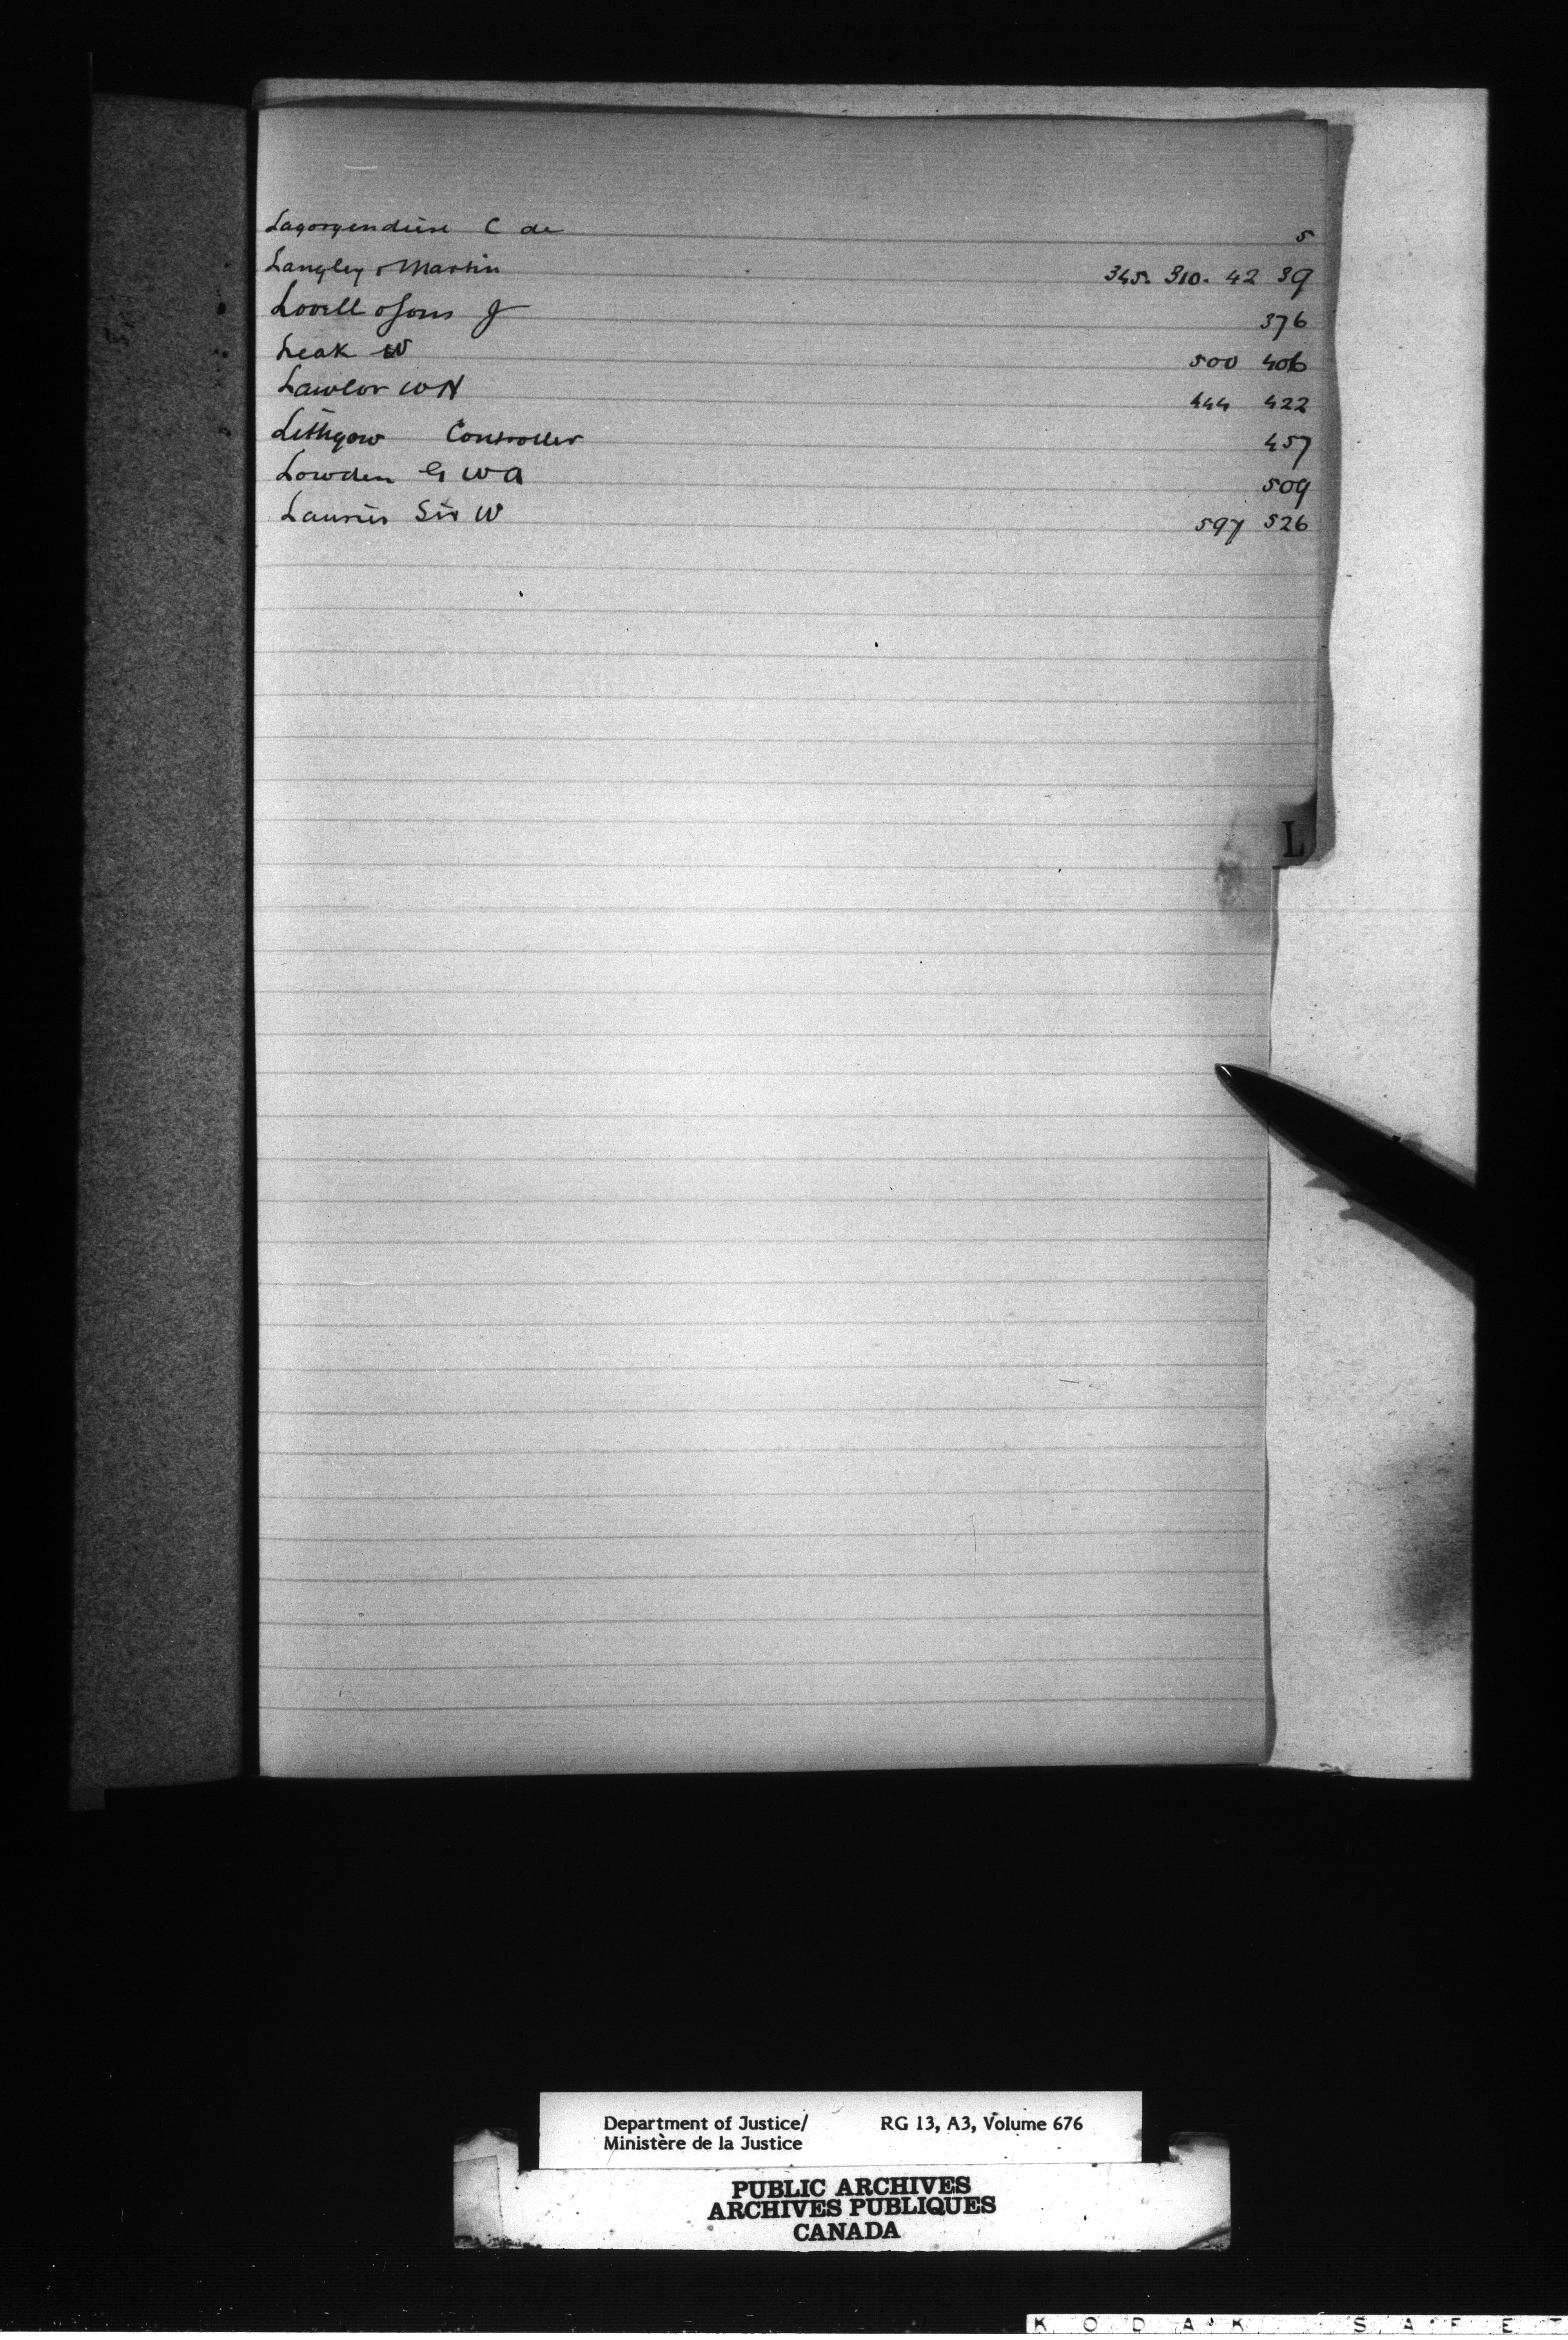 Lagorgendiere C de 5
Langley & Martin 345. 310. 42 39
Lovell & Sons J 376
Leak W 500 406
Lawlor W H 444 422
Lithgow Controller 457
Lowden G W A 509
Laurier Sir W 597 526
L
Department of Justice/ RG 13, A3, Volume 676
Ministère de la Justice
PUBLIC ARCHIVES
ARCHIVES PUBLIQUES
CANADA
KODAK SAFET